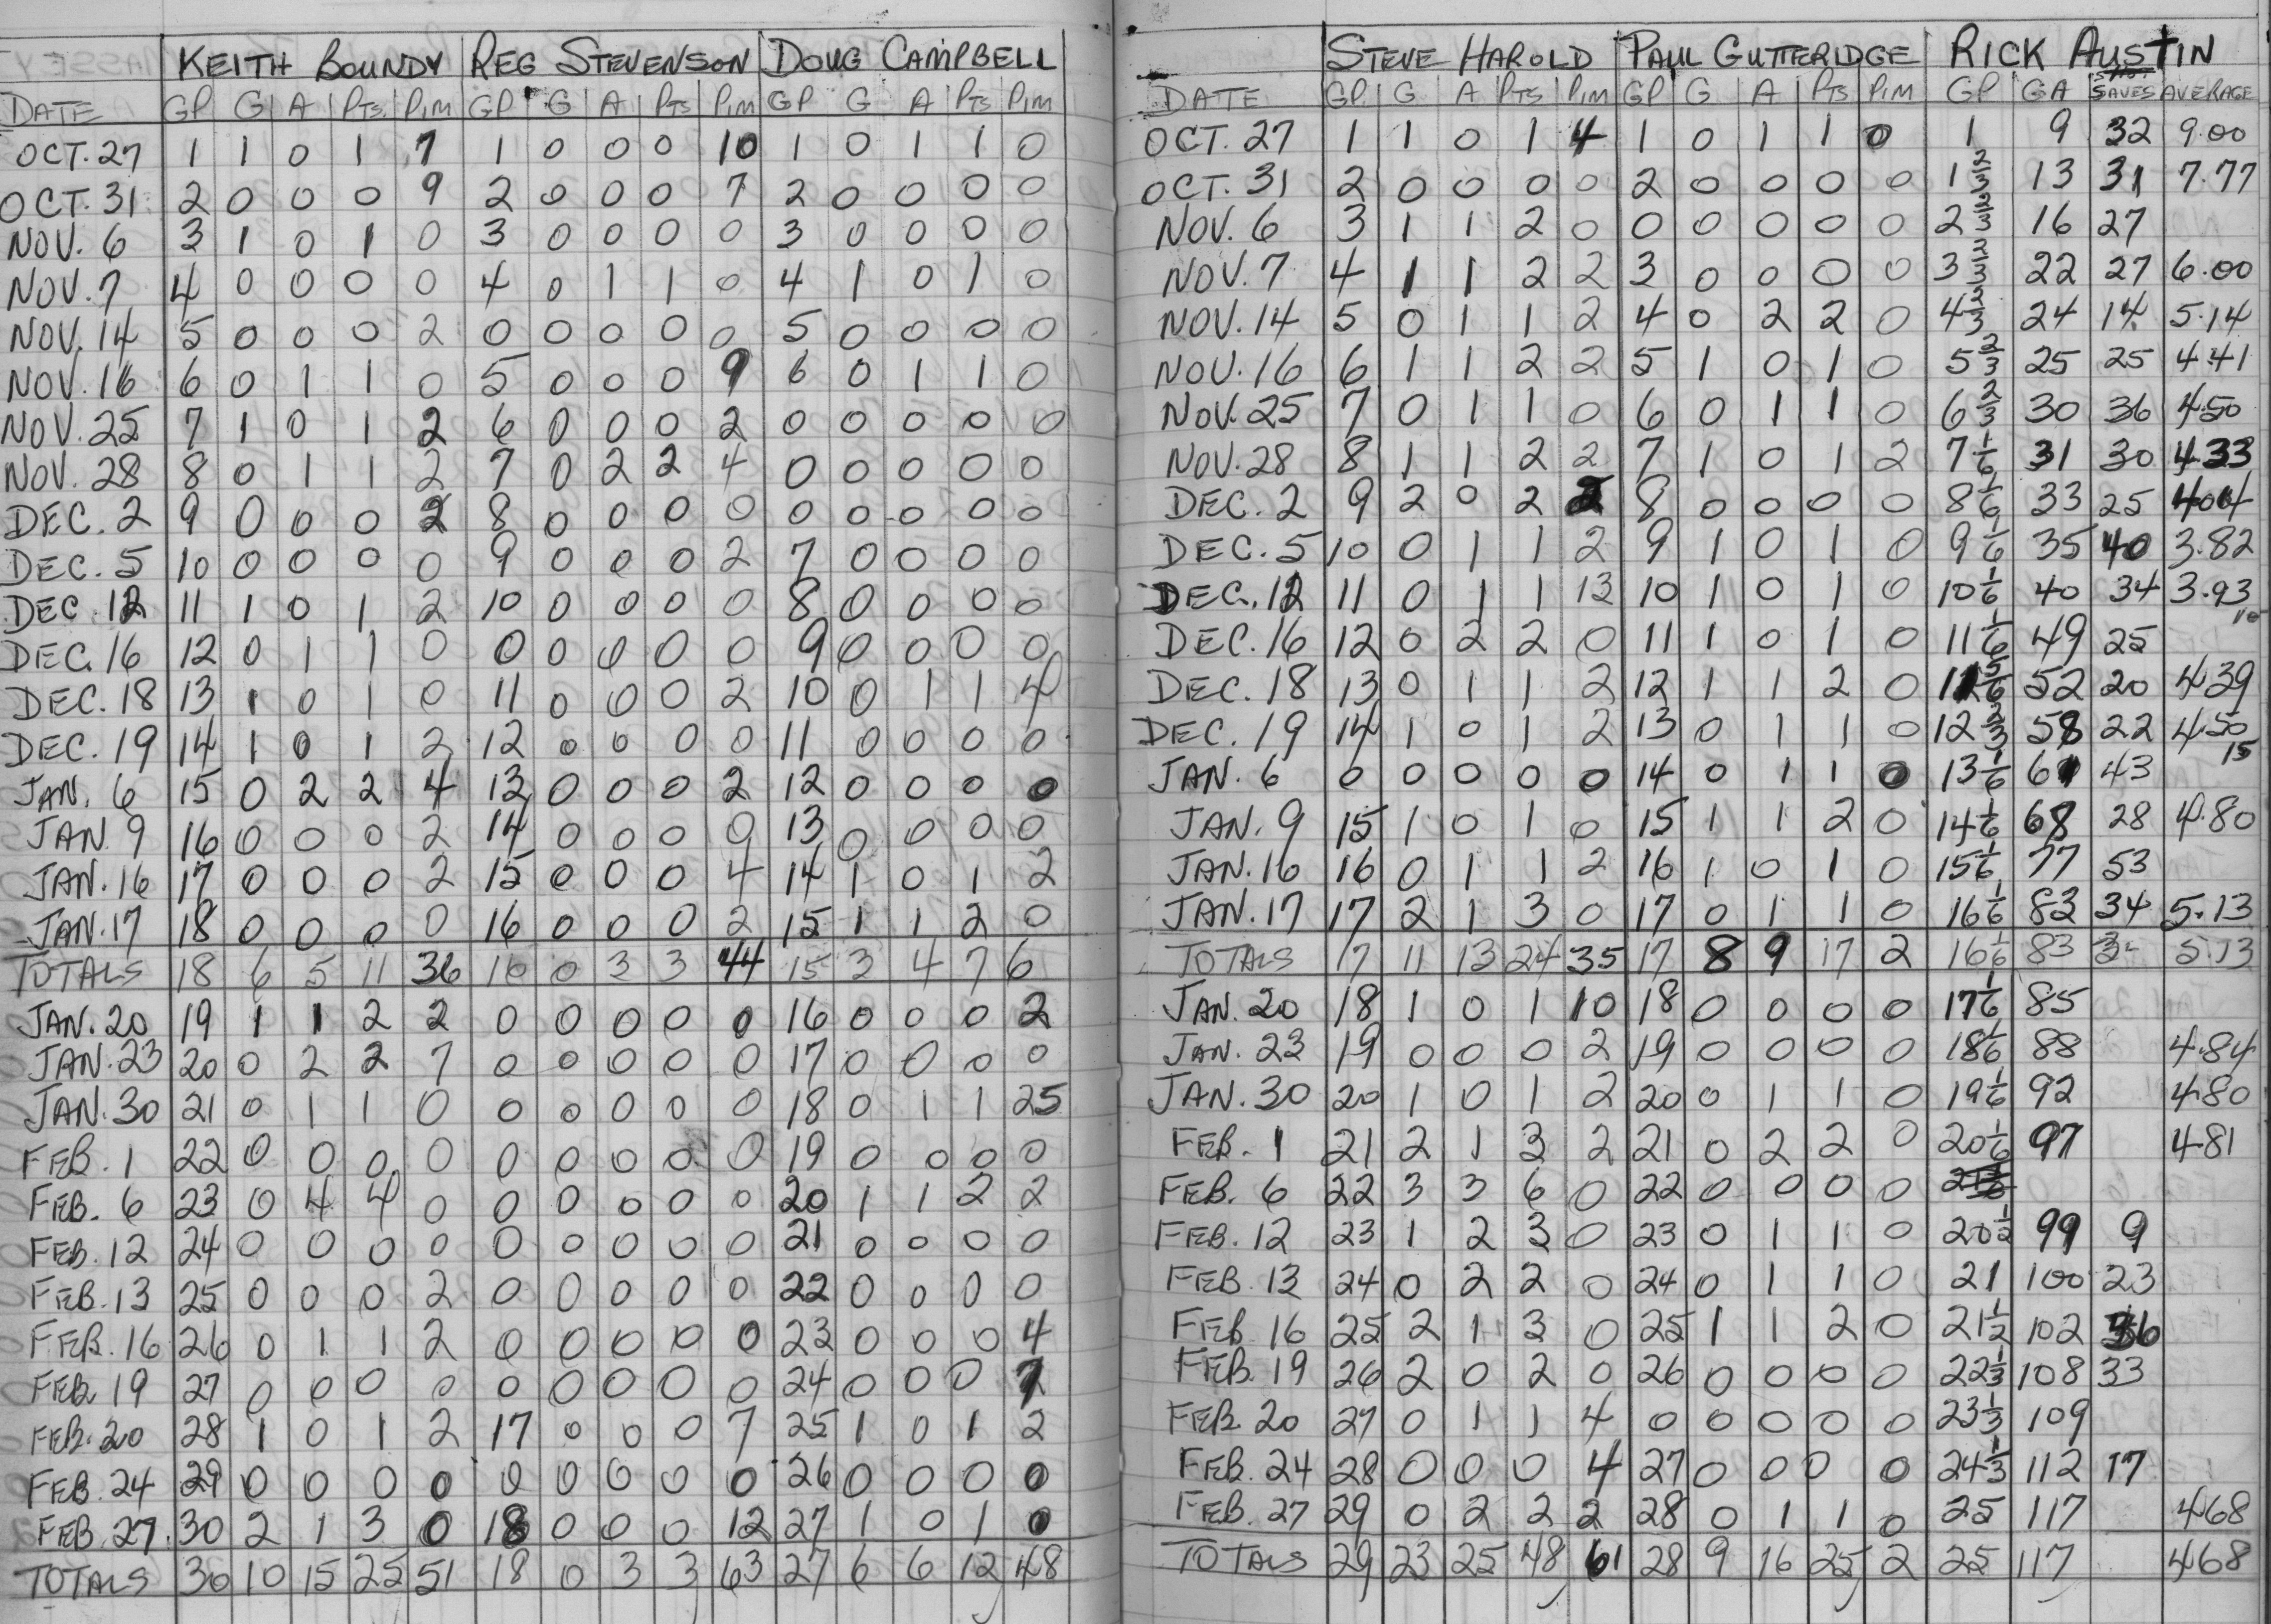 KEITH BOUNDY REG STEVENSON DOUG CAMPBELL
DATE GP G A PTS. PIM GP G A PTS PIM GP G A PTS PIM
OCT. 27 1 1 0 1 7 1 0 0 0 10 1 0 1 1 0
OCT. 31 2 0 0 0 9 2 0 0 0 7 2 0 0 0 0
NOV. 6 3 1 0 1 0 3 0 0 0 0 3 0 0 0 0
NOV. 7 4 0 0 0 0 4 0 1 1 0 4 1 0 1 0
NOV. 14 5 0 0 0 2 0 0 0 0 0 5 0 0 0 0
NOV. 16 6 0 1 1 0 5 0 0 0 9 6 0 1 1 0
NOV. 25 7 1 0 1 2 6 0 0 0 2 0 0 0 0 0
NOV. 28 8 0 1 1 2 7 0 2 2 4 0 0 0 0 0
DEC. 2 9 0 0 0 2 8 0 0 0 0 0 0 0 0 0
DEC. 5 10 0 0 0 0 9 0 0 0 2 7 0 0 0 0
DEC. 12 11 1 0 1 2 10 0 0 0 0 8 0 0 0 0
DEC. 16 12 0 1 1 0 0 0 0 0 0 9 0 0 0 0
DEC. 18 13 1 0 1 0 11 0 0 0 2 10 0 1 1 4
DEC. 19 14 1 0 1 2 12 0 0 0 0 11 0 0 0 0
JAN. 6 15 0 2 2 4 13 0 0 0 2 12 0 0 0 0
JAN. 9 16 0 0 0 2 14 0 0 0 0 13 0 0 0 0
JAN. 16 17 0 0 0 2 15 0 0 0 4 14 1 0 1 2
JAN. 17 18 0 0 0 0 16 0 0 0 2 15 1 1 2 0
TOTALS 18 6 5 11 36 16 0 3 3 44 15 3 4 7 6
JAN. 20 19 1 1 2 2 0 0 0 0 0 16 0 0 0 2
JAN. 23 20 0 2 2 7 0 0 0 0 0 17 0 0 0 0
JAN. 30 21 0 1 1 0 0 0 0 0 0 18 0 1 1 25
FEB. 1 22 0 0 0 0 0 0 0 0 0 19 0 0 0 0
FEB. 6 23 0 4 4 0 0 0 0 0 0 20 1 1 2 2
FEB. 12 24 0 0 0 0 0 0 0 0 0 21 0 0 0 0
FEB. 13 25 0 0 0 2 0 0 0 0 0 22 0 0 0 0
FEB. 16 26 0 1 1 2 0 0 0 0 0 23 0 0 0 4
FEB. 19 27 0 0 0 0 0 0 0 0 0 24 0 0 0 7
FEB. 20 28 1 0 1 2 17 0 0 0 7 25 1 0 1 2
FEB. 24 29 0 0 0 0 0 0 0 0 0 26 0 0 0 0
FEB. 27. 30 2 1 3 0 18 0 0 0 12 27 1 0 1 0
TOTALS 30 10 15 25 51 18 0 3 3 63 27 6 6 12 48
STEVE HAROLD PAUL GUTTERIDGE RICK AUSTIN
DATE GP G A PTS PIM GP G A PTS PIM GP GA SAVES AVERAGE
OCT. 27 1 1 0 1 4 1 0 1 1 0 1 9 32 9.00
OCT. 31 2 0 0 0 0 2 0 0 0 0 1 2/3 13 31 7.77
NOV. 6 3 1 1 2 0 0 0 0 0 0 2 2/3 16 27
NOV. 7 4 1 1 2 2 3 0 0 0 0 3 2/3 22 27 6.00
NOV. 14 5 0 1 1 2 4 0 2 2 0 4 2/3 24 14 5.14
NOV. 16 6 1 1 2 2 5 1 0 1 0 5 2/3 25 25 4.41
NOV. 25 7 0 1 1 0 6 0 1 1 0 6 2/3 30 36 4.50
NOV. 28 8 1 1 2 2 7 1 0 1 2 7 1/6 31 30 4.33
DEC. 2 9 2 0 2 2 8 0 0 0 0 8 1/6 33 25 4.04
DEC. 5 10 0 1 1 2 9 1 0 1 0 9 1/6 35 40 3.82
DEC. 12 11 0 1 1 13 10 1 0 1 0 10 1/6 40 34 3.93
DEC. 16 12 0 2 2 0 11 1 0 1 0 11 1/6 49 25 10
DEC. 18 13 0 1 1 2 12 1 1 2 0 11 5/6 52 20 4.39
DEC. 19 14 1 0 1 2 13 0 1 1 0 12 2/3 58 22 4.50
JAN. 6 0 0 0 0 0 14 0 1 1 0 13 1/6 61 43 15
JAN. 9 15 1 0 1 0 15 1 1 2 0 14 1/6 68 28 4.80
JAN. 16 16 0 1 1 2 16 1 0 1 0 15 1/6 77 53
JAN. 17 17 2 1 3 0 17 0 1 1 0 16 1/6 83 34 5.13
TOTALS 17 11 13 24 35 17 8 9 17 2 16 1/6 83 5.13
JAN. 20 18 1 0 1 10 18 0 0 0 0 17 1/6 85
JAN. 23 19 0 0 0 2 19 0 0 0 0 18 1/6 88 4.84
JAN. 30 20 1 0 1 2 20 0 1 1 0 19 1/6 92 4.80
FEB. 1 21 2 1 3 2 21 0 2 2 0 20 1/6 97 4.81
FEB. 6 22 3 3 6 0 22 0 0 0 0
FEB. 12 23 1 2 3 0 23 0 1 1 0 20 1/2 99 9
FEB. 13 24 0 2 2 0 24 0 1 1 0 21 100 23
FEB. 16 25 2 1 3 0 25 1 1 2 0 21 1/2 102 36
FEB. 19 26 2 0 2 0 26 0 0 0 0 22 1/3 108 33
FEB. 20 27 0 1 1 4 0 0 0 0 0 23 1/3 109
FEB. 24 28 0 0 0 4 27 0 0 0 0 24 1/3 112 17
FEB. 27 29 0 2 2 2 28 0 1 1 0 25 117 4.68
TOTALS 29 23 25 48 61 28 9 16 25 2 25 117 4.68